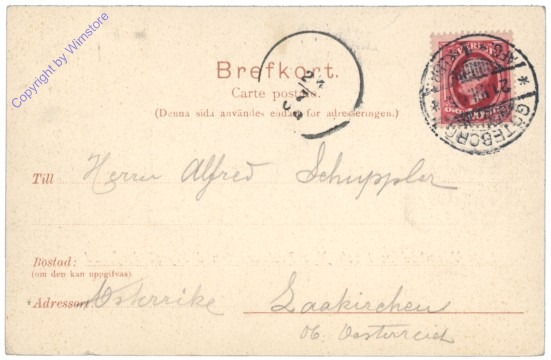 Copyright by Wimstore
Brefkort.
Carte postale.
(Denna sida användes endast för adresseringen.)
GÖTEBORG
Till Herrn Alfred Schuppler
Bostad:
(om den kan uppgifvas)
Adressort: Österrike Laakirchen
ob. Oesterreich